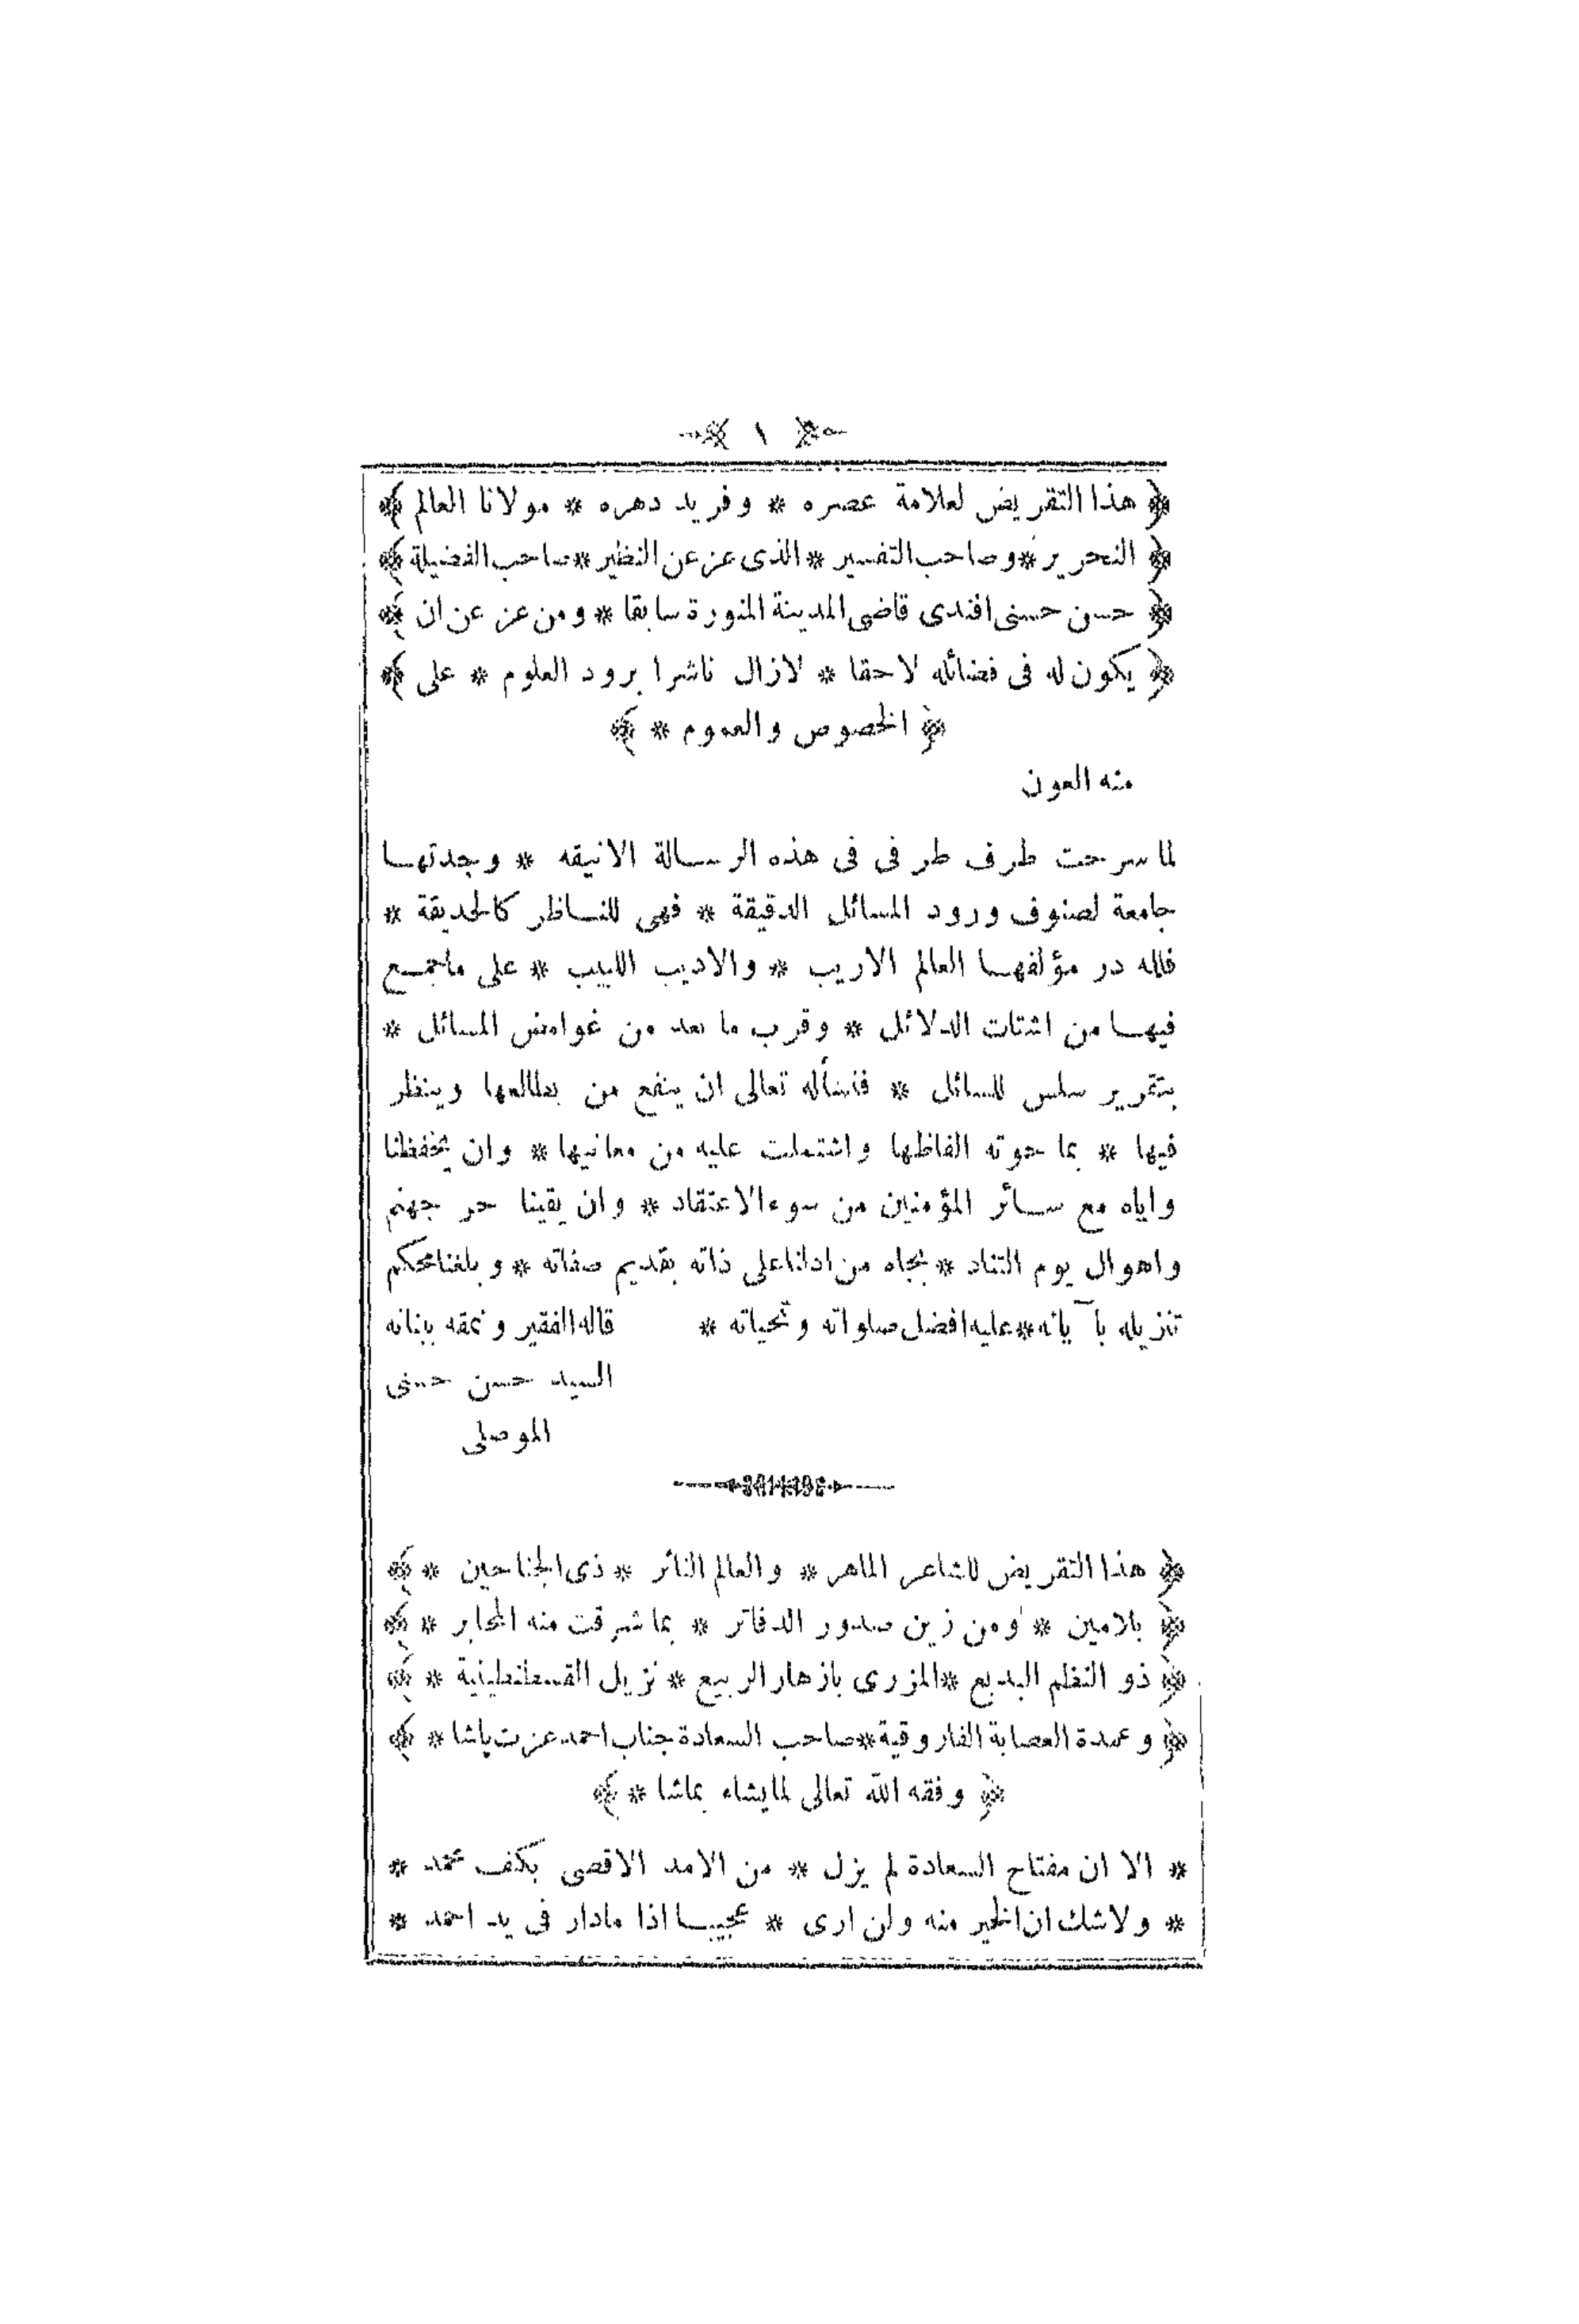 ١
﴿ هذا التقريض لعلامة عصره * وفريد دهره * مولانا العالم ﴾
﴿ النحرير * وصاحب التفسير * الذى عز عن النظير * صاحب الفضيلة ﴾
﴿ حسن حسنى افندى قاضى المدينة المنورة سابقا * ومن عز عن ان ﴾
﴿ يكون له فى فضائله لاحقا * لازال ناشرا برود العلوم * على ﴾
﴿ الخصوص والعموم * ﴾
منه العون
لما سرحت طرف طرفى فى هذه الرسالة الانيقه * وجدتها
جامعة لصنوف ورود المسائل الدقيقة * فهى للناظر كالحديقة *
فلله در مؤلفها العالم الاريب * والاديب اللبيب * على ماجمع
فيها من اشتات الدلائل * وقرب ما بعد من غوامض المسائل *
بتقرير سلس للسائل * فنسأله تعالى ان ينفع من يطالعها وينظر
فيها * بما حوته الفاظها واشتملت عليه من معانيها * وان يحفظنا
واياه مع سائر المؤمنين من سوء الاعتقاد * وان يقينا حر جهنم
واهوال يوم التناد * بجاه من ادلنا على ذاته بقديم صفاته * وبلغنا محكم
تنزيله بآياته * عليه افضل صلواته وتحياته * قاله الفقير ونمقه ببنانه
السيد حسن حسنى
الموصلى
﴿ هذا التقريض للشاعر الماهر * والعالم الناثر * ذى الجناحين * ﴾
﴿ بلامين * ومن زين صدور الدفاتر * بما شرقت منه المحابر * ﴾
﴿ ذو النظم البديع * المزرى بازهار الربيع * نزيل القسطنطينية * ﴾
﴿ وعمدة العصابة الفاروقية * صاحب السعادة جناب احمد عزت پاشا * ﴾
﴿ وفقه الله تعالى لمايشاء بماشا * ﴾
* الا ان مفتاح السعادة لم يزل * من الامد الاقصى بكف محمد *
* ولاشك ان الخير منه ولن ارى * عجيبا اذا مادار فى يد احمد *